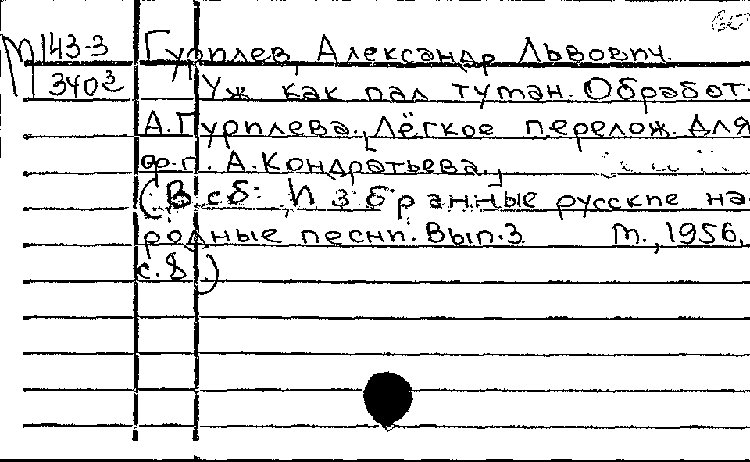 М 43-3 Гурилев, Александр Львович
340з Уж как пал туман. Обработ.
А.Гурилева., Лёгкое перелож. для
ф.п. А.Кондратьева.,
(В сб: Избранные русские на
родные песни. Вып.3 М., 1956,
с.8.)